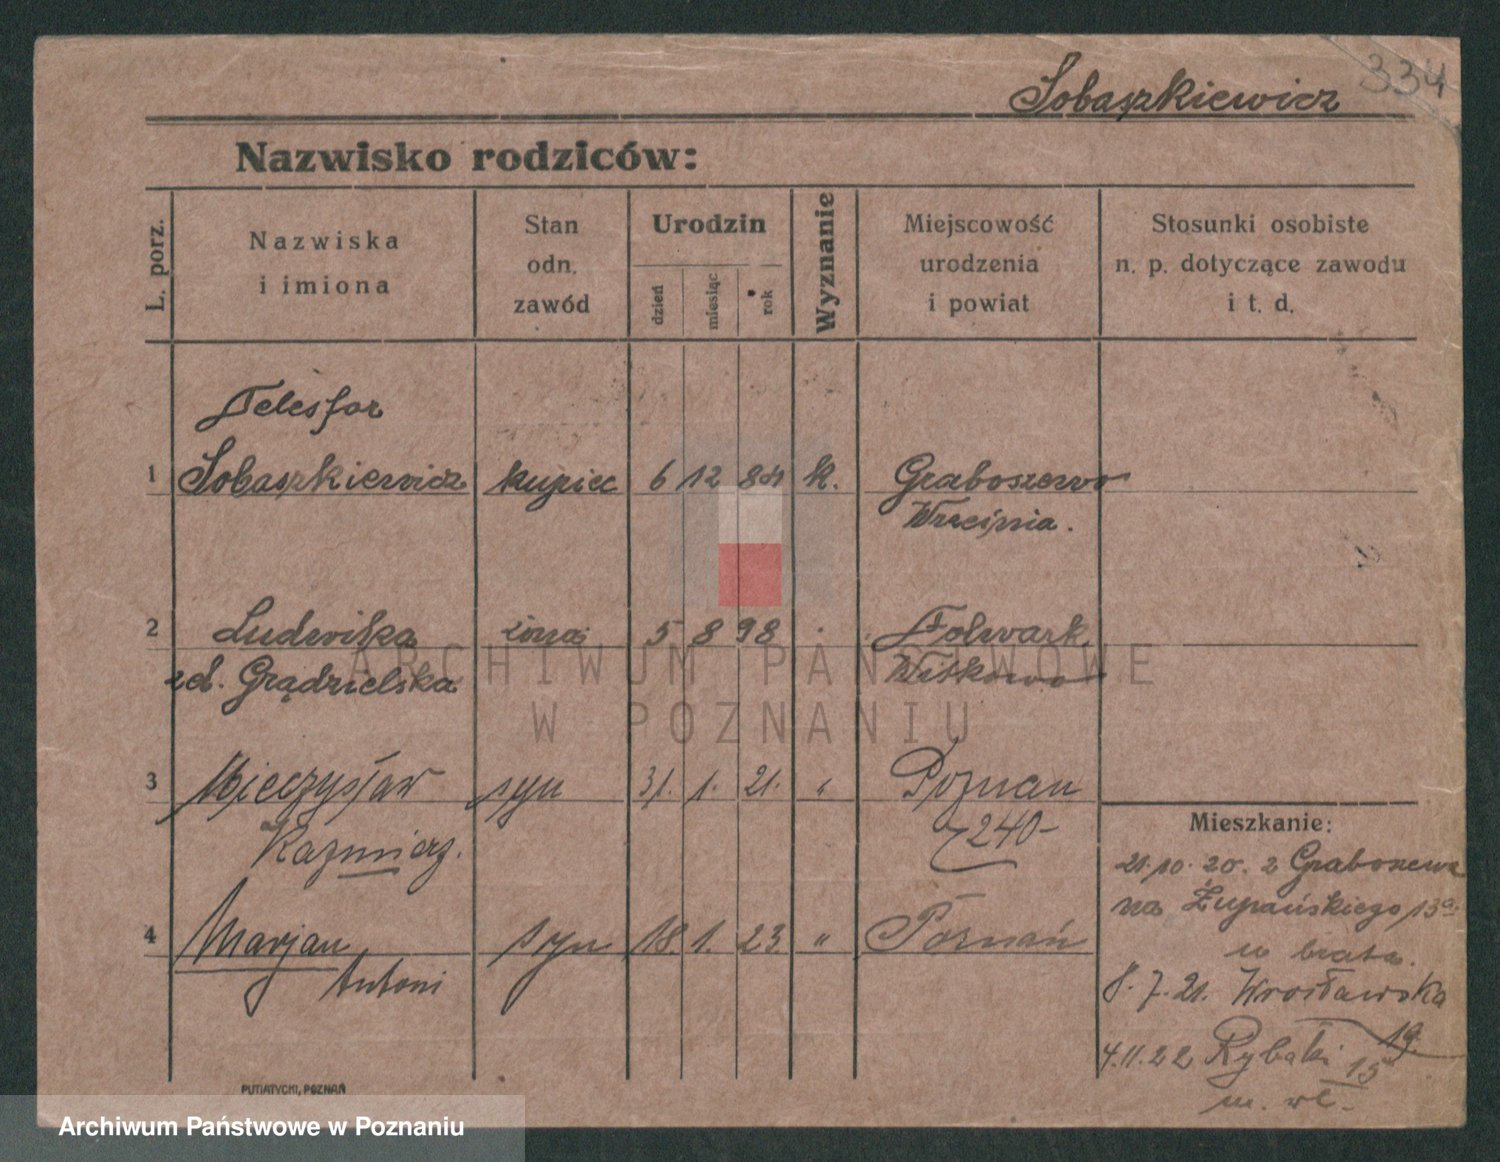 334
Sobaszkiewicz
Nazwisko rodziców:
L. porz.
Nazwiska
i imiona
Stan
odn.
zawód
Urodzin
dzień
miesiąc
rok
Wyznanie
Miejscowość
urodzenia
i powiat
Stosunki osobiste
n. p. dotyczące zawodu
i t. d.
Telesfor
1 Sobaszkiewicz kupiec 6 12 84 k. Graboszewo
Września.
2 Ludwika żona 5 8 98 Folwark
zd. Grądzielska Witkowo
ARCHIWUM PAŃSTWOWE
W POZNANIU
3 Mieczysław syn 31. 1. 21. " Poznan
Kazmierz. 240-
4 Marjan syn 18. 1. 23. " Poznań
Antoni
Mieszkanie:
21.10.20. z Graboszewa
na Żupańskiego 13a
u brata.
8.7.21. Wrocławska
19.
4.11.22 Rybaki 15
m. wł.
PUTIATYCKI, POZNAŃ
Archiwum Państwowe w Poznaniu